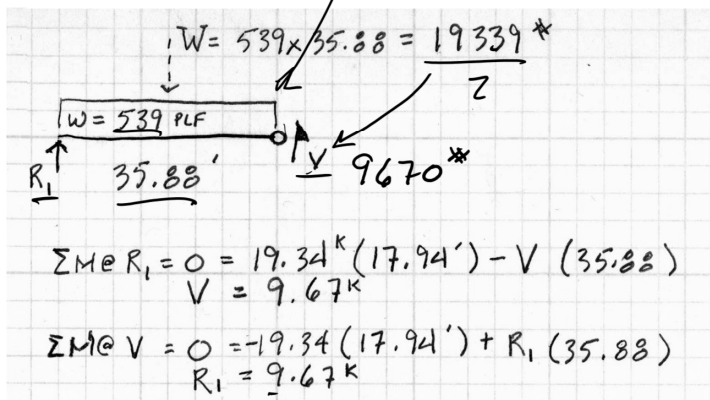 W = 539 x 35.88 = 19339 #
2
W = 539 PLF
R1
35.88'
V 9670 #
ΣM@ R1 = 0 = 19.34ᴷ (17.94') - V (35.88)
V = 9.67ᴷ
ΣM@ V = 0 = -19.34 (17.94') + R1 (35.88)
R1 = 9.67ᴷ